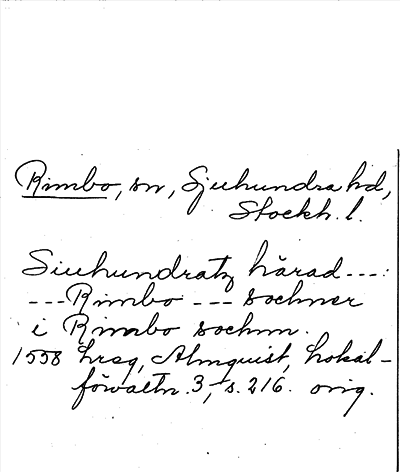 Rimbo, sn, Sjuhundra hd,
Stockh. l.
Siuhundratz härad ---:
--- Rimbo --- sochner
i Rimbo sochnn.
1558 hrsg, Almquist, Lokal-
förvaltn. 3, s. 216. orig.